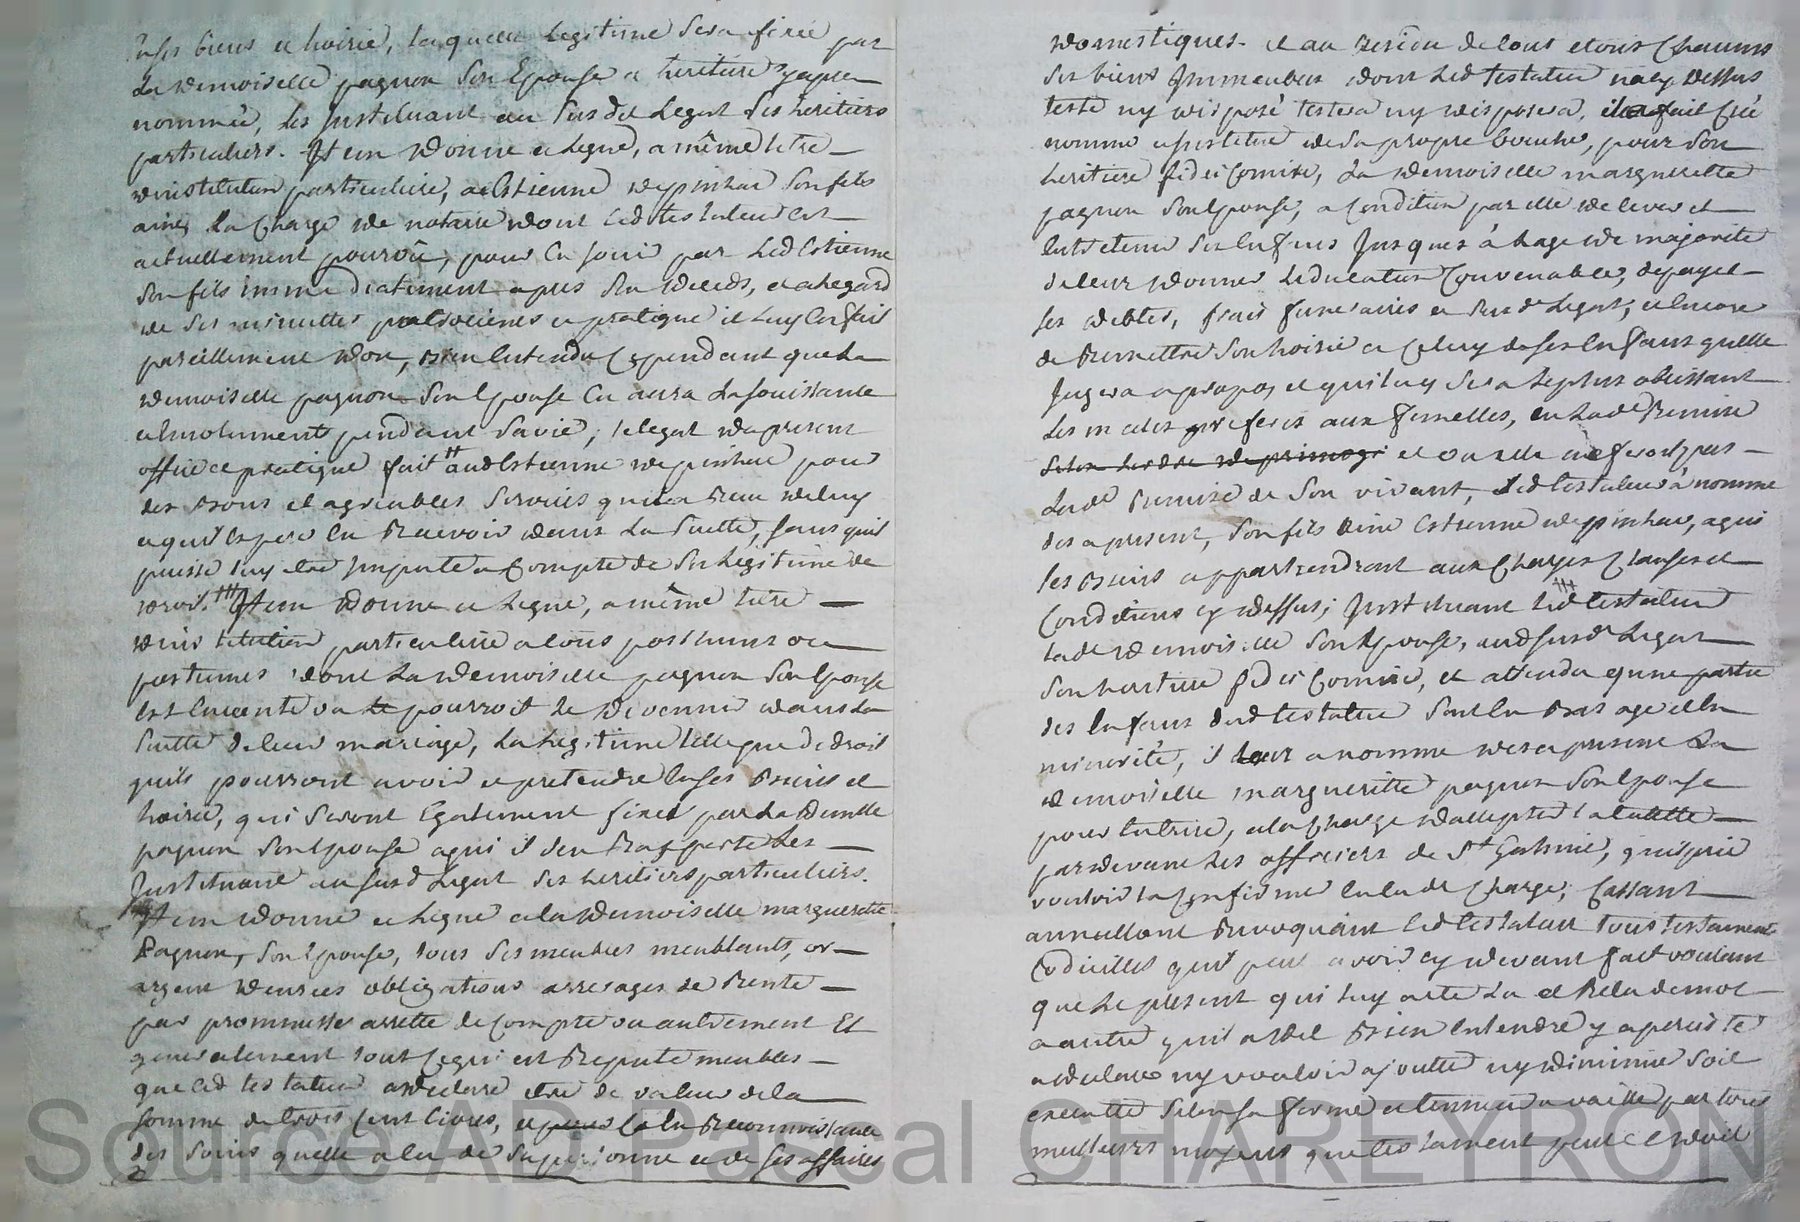 Enses biens et hoirie, laquelle legitime sera fixée par
La demoiselle pagnon son Epouse et heritiere cy apres
nommée, les Instituant au susdit Legat ses heritiers
particuliers. Item donne et legue, a même titre
dinstitution particuliere, a Estienne depinhac son fils
ainé la Charge de notaire dont led testateur est
actuellement pourvû, pour En jouir par Led Estienne
son fils immediatement apres son deceds, et alegard
de ses minuttes protocienes et pratique il luy En fait
pareillement don, bien Entendu Cependant que La
demoiselle pagnon son Epouse En aura La jouissance
et emolument pendant sa vie; le legat du present
office et pratique fait aud Estienne depinhac pour
des bons et agreables services quil a Reçu de luy
et quil Espere En Recevoir dans La suitte, sans quil
puisse luy etre Imputé a Compte de sa Legitime de
droit. Item donne et Legue, a même titre
dinstitution particuliere a tous posthumes ou
postumes dont La demoiselle pagnon son Epouse
est Enceinte ou pourroit le devenir dans La
suitte de leur mariage, La Legitime telle que de droit
quils pourront avoir et pretendre En ses biens et
hoirie, qui seront Egalement fixés par La Demlle
pagnon son Epouse a qui il sen Rapporte Les
Instituant au susd Legat ses heritiers particuliers.
Item donne et Legue a la demoiselle marguerite
Pagnon, son Epouse, tous ses meubles meublants, or
argent denrées obligations arrerages de Rente
par prommesse arretté de Compte ou autrement Et
generalement tout Cequi est Reputé meubles
que led testateur a declaré etre de valeur de la
somme de trois Cent livres, et Ce En Reconnoissance
des soins quelle a Eu de sa personne et de ses affaires
domestiques. et au Residu de tout et tous Chacuns
ses biens Immeubles dont Led testateur na cy dessus
testé ny disposé testera ny disposera, il a fait Créé
nommé et Institué de sa propre bouche, pour son
heritiere fideicomise, La demoiselle marguerite
pagnon son Epouse, a Condition par elle delever et
Entretenir ses Enfens Jusques à Lage de majorité
de leur donner Leducation Convenable, de payer
ses debtes, frais funeraires et susd Legat, et Encore
de Remettre son hoirie a Celuy de ses Enfans quelle
Jugera a propos et qui luy sera Le plus obeissant
Les males preferés aux femelles, En Lade Remise
selon Lordre de primogé et ou elle ne feroit pas
Lade Remise de son vivant, led testateur à nommé
des a present, son fils Ainé Estienne depinhac, a qui
les Biens appartiendront aux Charges Clauses et
Conditions cy dessus; Instituant Led testateur
lade demoiselle son Epouse, aud susd Legat
son heritiere fideicomise, et attendu qune partie
des Enfens dud testateur sont En Bas age et En
minorité, il a nommé des a present La
demoiselle margueritte pagnon son Epouse
pour tutrice, a la Charge daccepter la tutelle
pardevant Les officiers de St Galmier, quil prie
vouloir La Confirmer En lade Charge, Cassant
annullant Revoquant Led testateur tous testaments
Codicilles quil peut avoir cy devant fait voulant
que Le present qui luy a eté Lu et Relu de mot
a autre quil a dit Bien Entendre y a persisté
a declaré ny vouloir ajoutter ny diminuer soit
executé selon sa forme et teneur et vaille par tous
meilleurs moyens que testament peut et doit
Source AD Pascal CHARLEYRON